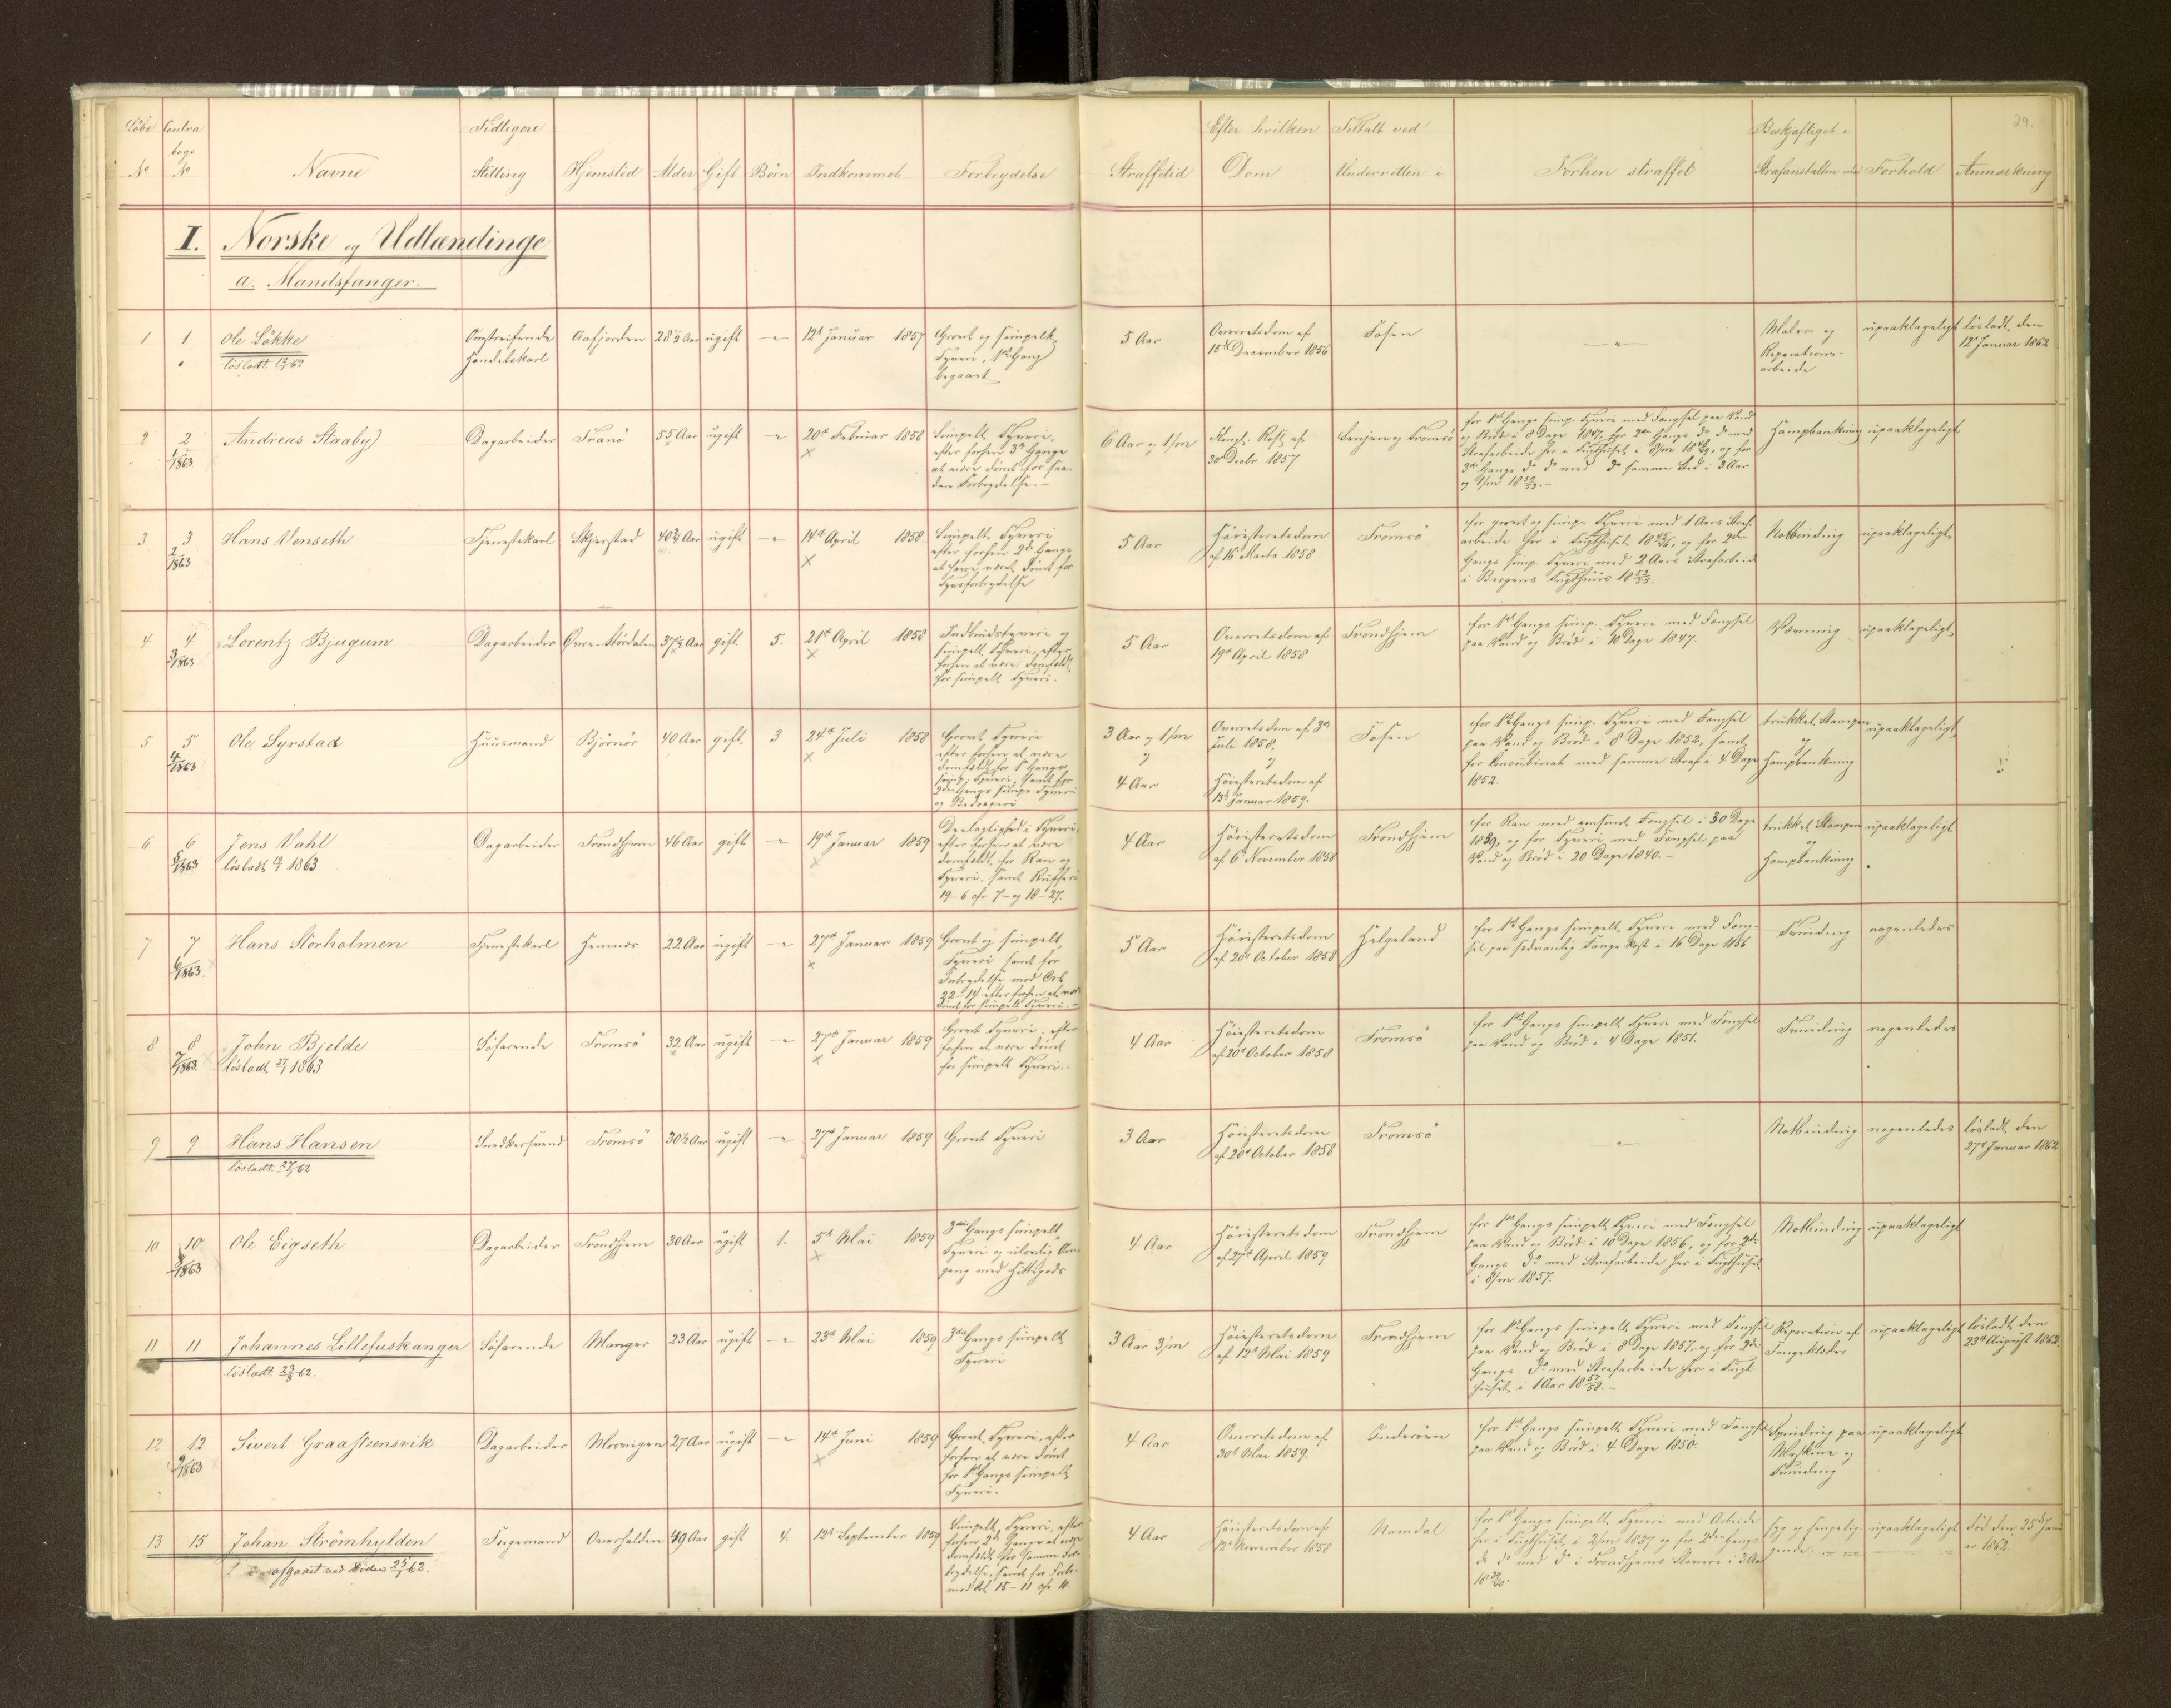 Løbe No
Contra bogs No
Navne
Tidligere Stilling
Hjemsted
Alder
Gift
Børn
Indkommet
Forbrydelse
Straffetid
Efter hvilken Dom
Tiltalt ved Underretten i
Forhen straffet
Beskjæftiget i Strafanstalten med
Forhold
Anmærkning
29.
I. Norske og Udlændinge
a. Mandsfanger.
1 1 Ole Løkke
løsladt 12/1 62
Omstreifende Handelskarl
Aafjorden 28½ Aar ugift
12te Januar 1857
Grovt og simpelt Tyveri, 1ste Gang begaaet
5 Aar
Overretsdom af 15de December 1856
Fosen
Maler og Reparations-arbeide
upaaklageligt
løsladt den 12te Januar 1862
2 2 1/1863 Andreas Staaby
Dagarbeider Tranö 55 Aar ugift
20de Februar 1858
Simpelt Tyveri, efter forhen 3de Gange at være dømt for saadan Forbrydelse.
6 Aar og 1/m
30te Decbr 1857
Senjen og Tromsö
for 1ste Gangs simp. Tyveri med Fængsel paa Vand og Brød i 8 Dage 1847, for 2den Gangs do do med Strafarbeide her i Tugthuset i 8/m 1848/49, og for 3die Gangs do do med do samme Sted i 3 Aar og 1/m 1850/53.
Hampbankning upaaklageligt
3 3 2/1863 Hans Venseth
Tjenestekarl Skjerstad 40¾ Aar ugift
14de April 1858
Simpelt Tyveri efter forhen 2de Gange at have været dømt for Tyvsforbrydelse
5 Aar
Høiesteretsdom af 16de Marts 1858
Tromsö
for grovt og simp. Tyveri med 1 Aars Strafarbeide her i Tugthuset 1845/46, og for 2den Gangs simp. Tyveri med 2 Aars Strafarbeide i Bergens Tugthuus 1853/55.
Notbinding upaaklageligt
4 4 3/1863 Lorentz Bjugum
Dagarbeider Øvre-Størdalen 37½ Aar gift 5.
21de April 1858
Indbrudstyveri og simpelt Tyveri, efter forhen at være domfældt for simpelt Tyveri.
5 Aar
Overretsdom af 19de April 1858
Trondhjem
for 1ste Gangs simp. Tyveri med Fængsel paa Vand og Brød i 10 Dage 1847.
Væвning upaaklageligt
5 5 4/1863 Ole Syrstad
Huusmand Bjørnör 40 Aar gift. 3
24de Juli 1858
Grovt Tyveri efter forhen at være domfældt for 1ste Gangs simp. Tyveri, samt for 2den Gangs simpe Tyveri og Bedrageri
3 Aar og 1/m og 4 Aar
Overretsdom af 3die Juli 1858. og Høiesteretsdom af 13de Januar 1859.
Fosen
for 1ste Gangs simp. Tyveri med Fængsel paa Vand og Brød i 8 Dage 1852, samt for Concubinat med samme Straf i 4 Dage 1852.
trukket Stampen og Hampbankning
upaaklageligt
6 6 5/1863 Jens Vahl
løsladt 19/1 1863
Dagarbeider Trondhjem 46 Aar gift
19de Januar 1859
Deelagtighed i Tyveri, efter forhen at være domfældt for Ran og Tyveri, samt Kufferi 19-6 cfr 7- og 18-27.
4 Aar
Høiesteretsdom af 6te November 1858
Trondhjem
for Ran med eensomt Fængsel i 30 Dage 1839, og for Tyveri med Fængsel paa Vand og Brød i 20 Dage 1840.
trukket Stampen og Hampbankning
upaaklageligt
7 7 6/1863. Hans Storholmen
Tjenestekarl Hemnes 22 Aar ugift
27de Januar 1859
Grovt og simpelt Tyveri samt for Forbrydelse mod Crl. 22-14 efter forhen at være dømt for simpelt Tyveri.
5 Aar
Høiesteretsdom af 20de October 1858
Helgeland
for 1ste Gangs simpelt Tyveri med Fængsel paa sædvanlig Fange Kost i 16 Dage 1856
Snidning nogenledes
8 8 7/1863. John Bjelde
løsladt 27/1 1863
Søfarende Tromsö 32 Aar ugift
27de Januar 1859
Grovt Tyveri, efter forhen at være dømt for simpelt Tyveri.
4 Aar
Høiesteretsdom af 20de October 1858
Tromsö
for 1ste Gangs simpelt Tyveri med Fængsel paa Vand og Brød i 4 Dage 1851.
nogenledes
9 9 Hans Hansen
løsladt 27/1 62
Snedkersvend Tromsö 30½ Aar ugift
27de Januar 1859
Grovt Tyveri
3 Aar
Høiesteretsdom af 20de October 1858
Tromsö
Notbinding nogenledes
løsladt den 27de Januar 1862
10 10 8/1863 Ole Eigseth
Dagarbeider Trondhjem 30 Aar ugift 1.
5te Mai 1859
3die Gangs simpelt Tyveri og ulovlig Omgang med Hittegods
4 Aar
Høiesteretsdom af 27de April 1859
Trondhjem
for 1ste Gangs simpelt Tyveri med Fængsel paa Vand og Brød i 10 Dage 1856, og for 2den Gangs do med Strafarbeide her i Tugthuset i 8/m 1857.
Notbinding upaaklageligt
11 11 Johannes Lillefuskanger
løsladt 23/8 62.
Søfarende Manger 23 Aar ugift
23de Mai 1859
3die Gangs simpelt Tyveri
3 Aar 3/m
Høiesteretsdom af 12te Mai 1859
Trondhjem
for 1ste Gangs simpelt Tyveri med Fængsel paa Vand og Brød i 8 Dage 1857, og for 2den Gangs do med Strafarbeide her i Tugthuset i 1 Aar 1857/58.
Reparation af Fangeklæder
upaaklageligt
løsladt den 23de August 1862.
12 12 9/1863 Sivert Graasteensvik
Dagarbeider Mosvigen 27 Aar ugift
14de Juni 1859
Grovt Tyveri, efter forhen at være dømt for 1ste Gangs simpelt Tyveri.
4 Aar
Overretsdom af 30te Mai 1859.
Inderøen
for 1ste Gangs simpelt Tyveri med Fængsel paa Vand og Brød i 4 Dage 1850.
Spinding paa Maskine og
upaaklageligt
13 15 Johan Strömhylden
afgaaet ved Døden 25/1 62.
Overhalden 49 Aar gift 4.
12te September 1859
Simpelt Tyveri, efter forhen 2de Gange at være domfældt for samme Forbrydelse, samt for Forbr. mod Crl 15-11 cfr 10.
4 Aar
Høiesteretsdom af 12te November 1858
Namdal
for 1ste Gangs simpelt Tyveri med Arbeide her i Tugthuset i 2/m 1837 og for 2den Gangs do do med do i Trondhjems Slaveri i 3 Aar 1837/40.
Syg og sengeliggende.
upaaklageligt
død den 25de Januar 1862